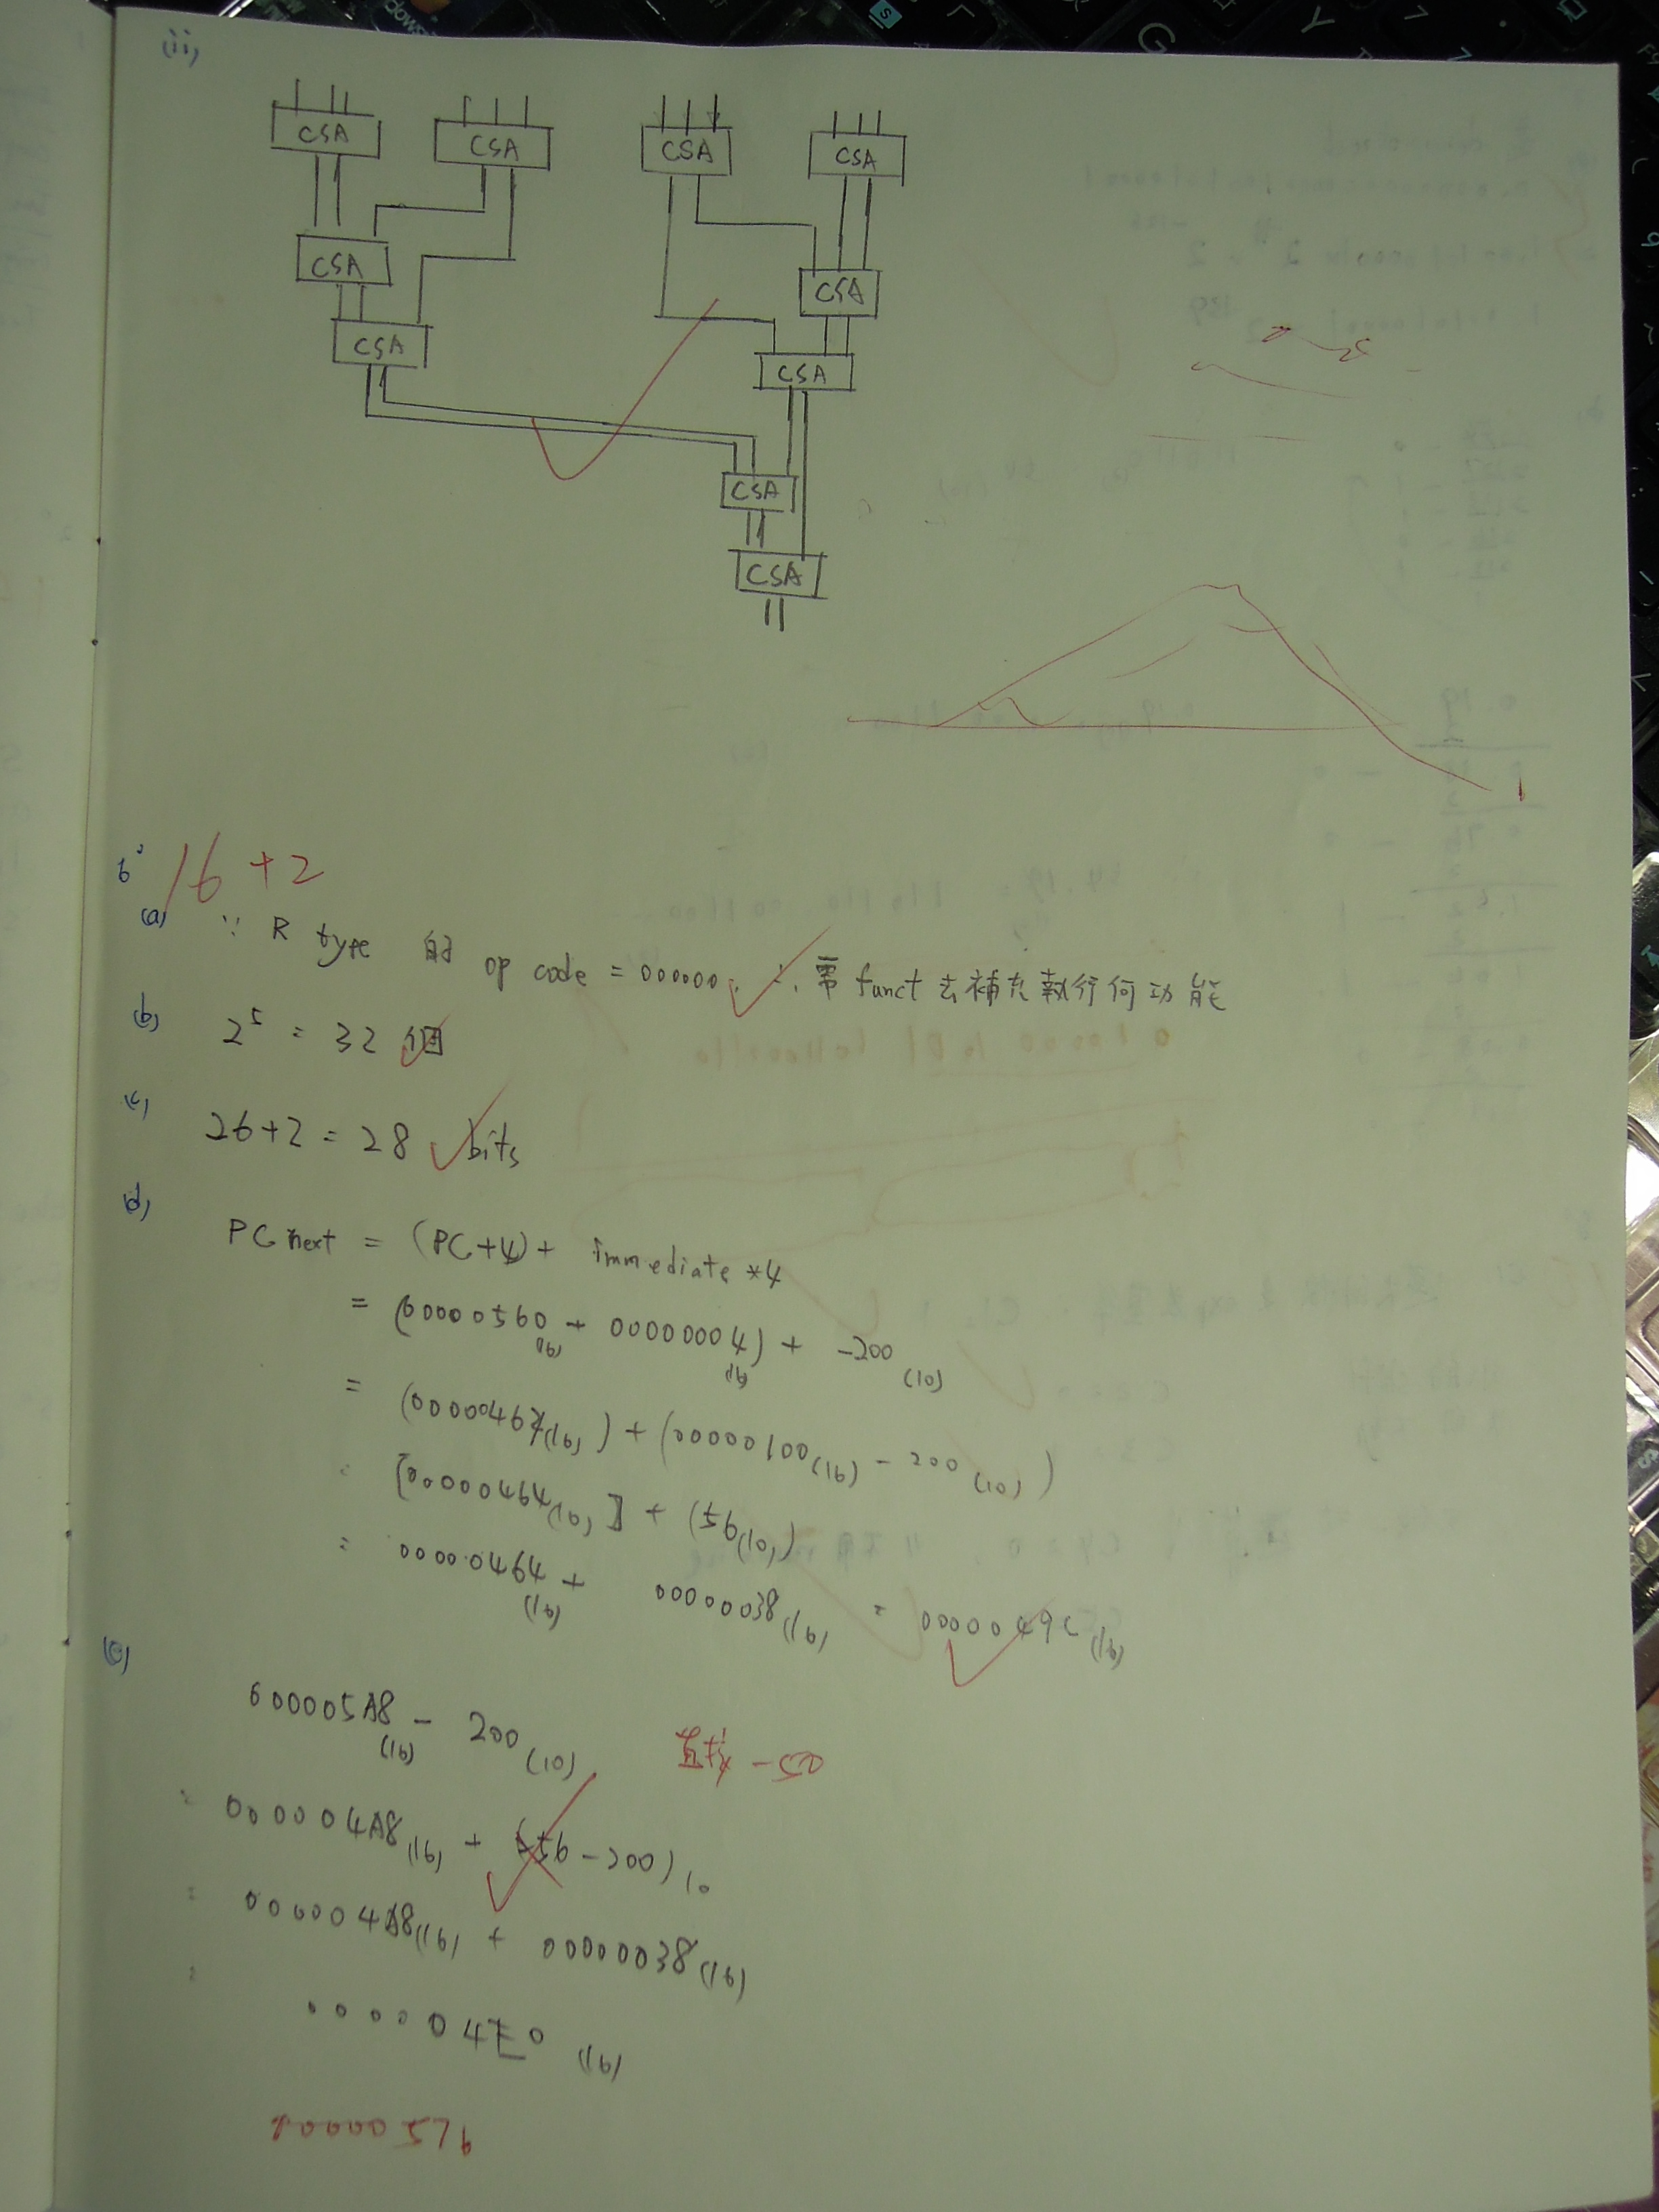 (ii)
CSA CSA CSA CSA
CSA CSA
CSA CSA
CSA
CSA
6. 16 +2
(a) ∵ R type 的 op code = 000000, ∴ 需 funct 去補充執行何功能
(b) 2^5 = 32 個
(c) 26+2 = 28 bits
(d)
PC next = (PC+4) + immediate *4
= (00000560(16) + 00000004(16)) + -200(10)
= (00000464(16)) + (00000100(16) - 200(10))
= [00000464(16)] + (56(10))
= 00000464(16) + 00000038(16) = 0000049C(16)
(e)
000005A8(16) - 200(10)
= 000004A8(16) + (256-200)10
= 000004A8(16) + 00000038(16)
= 000004E0(16)